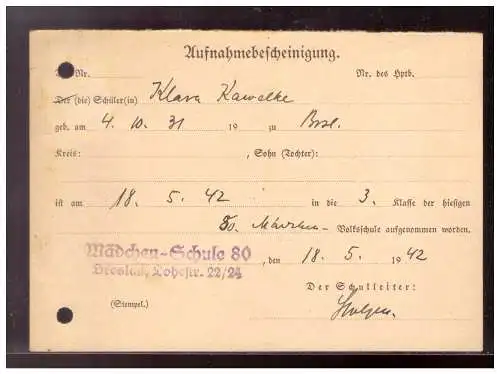 Aufnahmebescheinigung.
Nr. Nr. des Hptb.
Der (die) Schüler(in) Klara Kawelke
geb. am 4. 10. 31 19 zu Brsl.
Kreis: , Sohn (Tochter):
ist am 18. 5. 42 in die 3. Klasse der hiesigen
80. Mädchen- Volksschule aufgenommen worden.
Mädchen-Schule 80
Breslau, Lohestr. 22/24
, den 18. 5. 1942
Der Schulleiter:
(Stempel.)